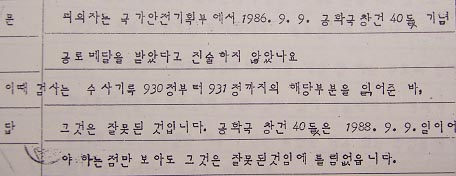 문 피의자는 국가안전기획부에서 1986. 9. 9. 공화국창건 40돐 기념
공로메달을 받았다고 진술하지 않았나요
이때 검사는 수사기록 930정부터 931정까지의 해당부분을 읽어준 바,
답 그것은 잘못된 것입니다. 공화국 창건 40돐은 1988. 9. 9.일이어
야 하는점만 보아도 그것은 잘못된것임에 틀림없읍니다.